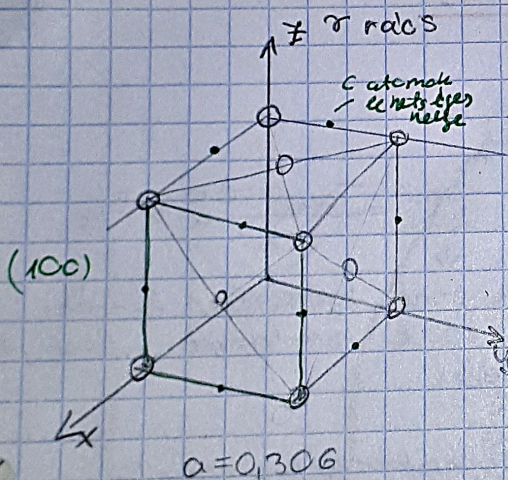 z γ rács
C atomok
lehetséges
helye
(100)
x
y
a=0,306